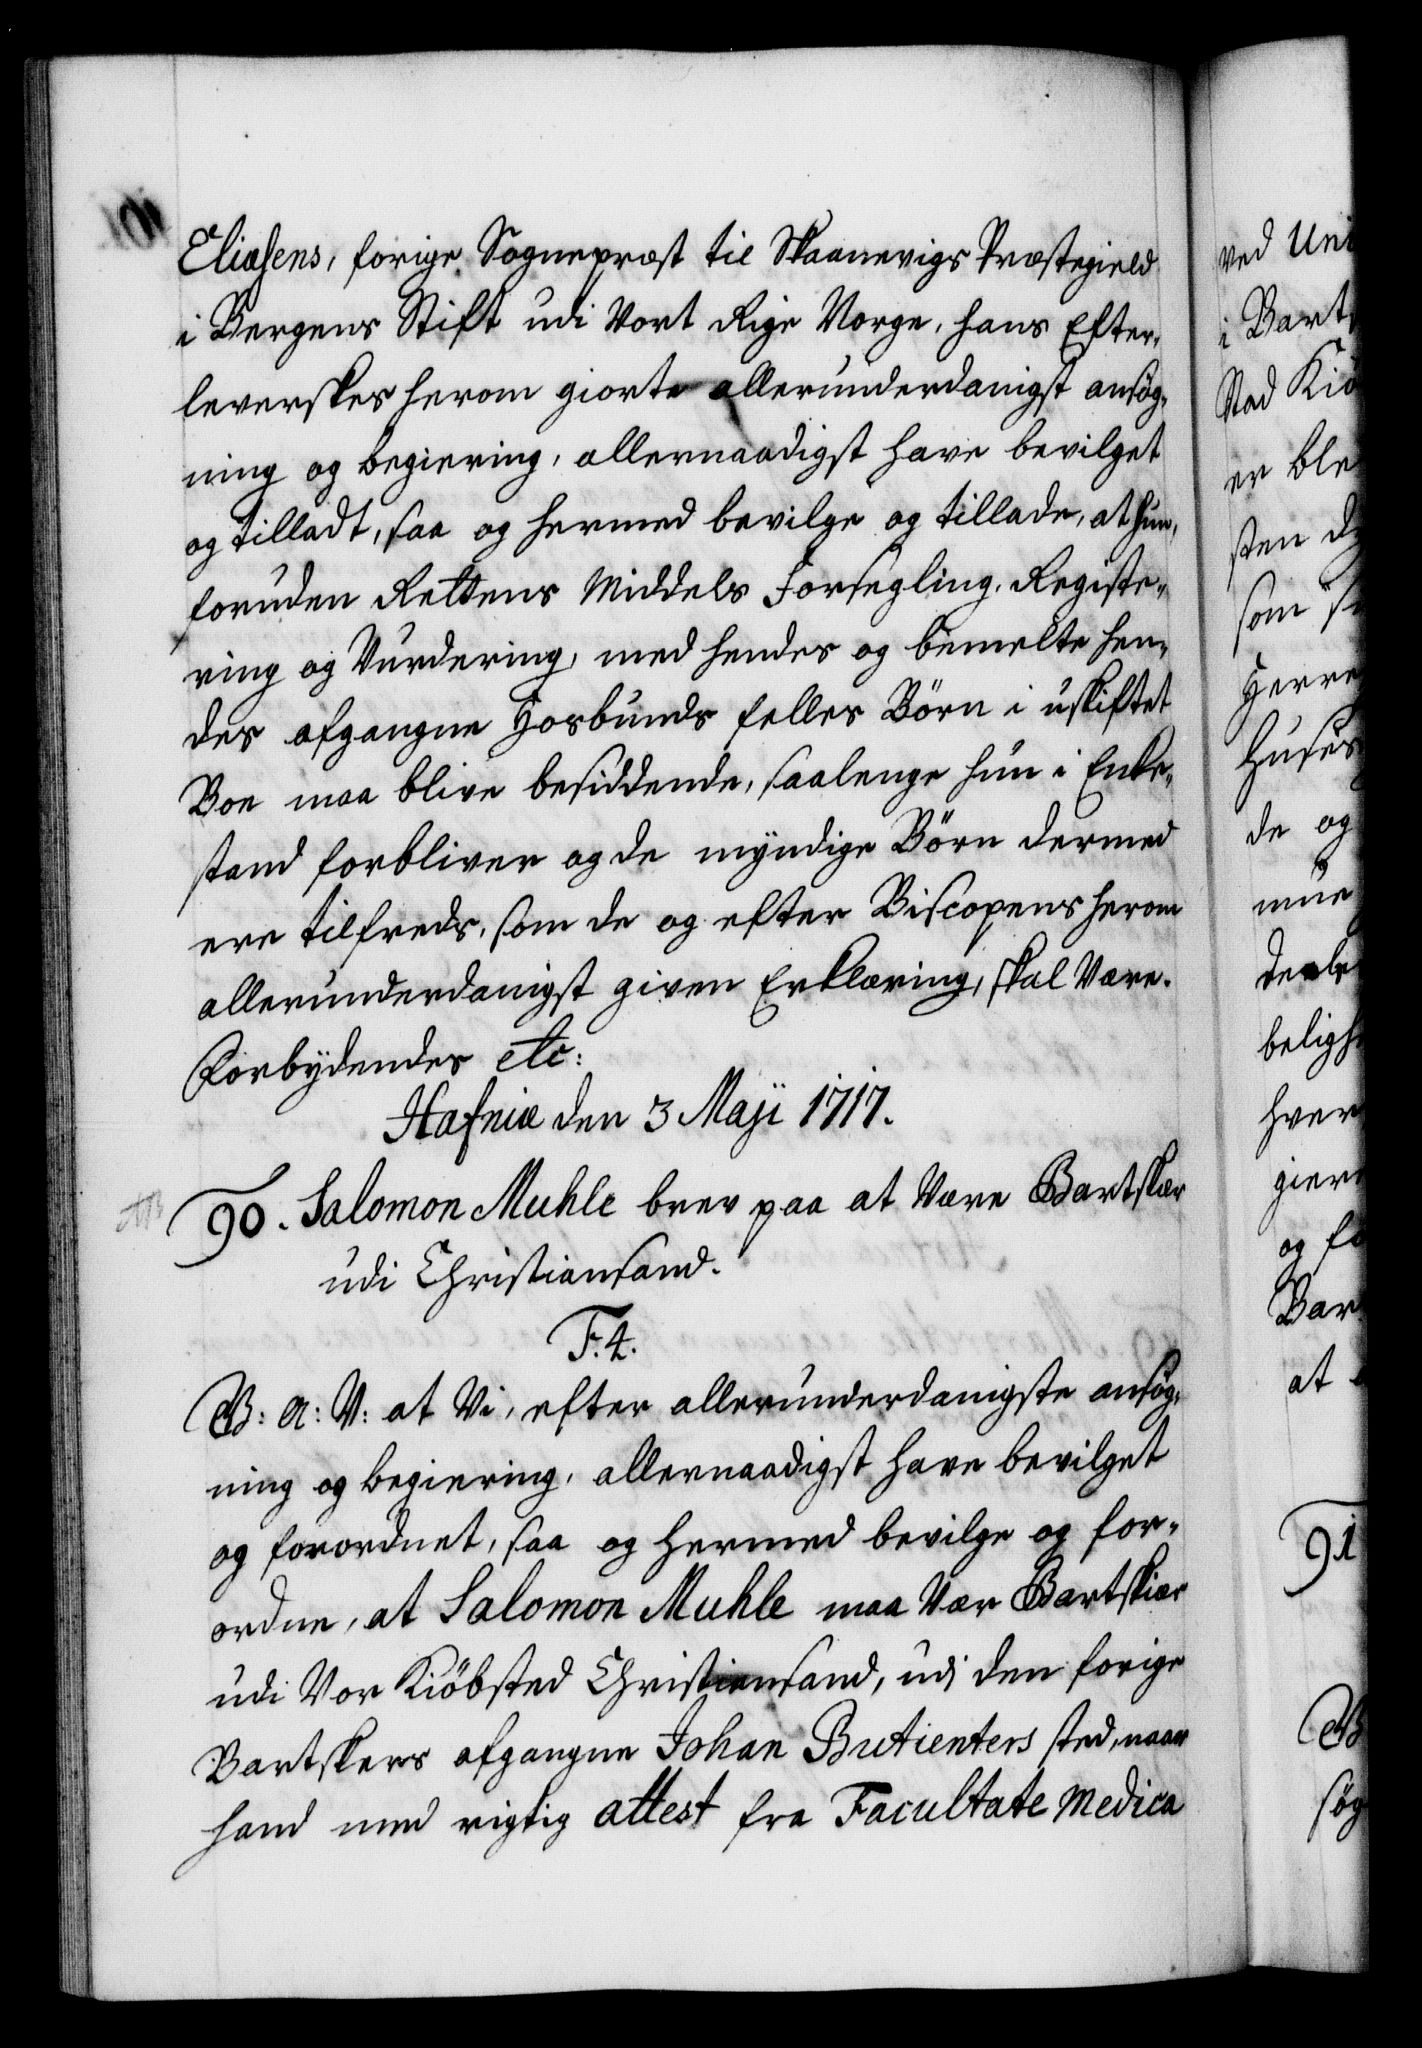 Eliæsens, forige Sognepræst til Skaanevigs Præstegield
i Bergens Stift udi Vort Rige Norge, hans Efter-
leverskes herom giorte allerunderdanigst ansøg-
ning og begiering, allernaadigst have bevilget
og tilladt, saa og hermed bevilge og tillade, at hun,
foruden Rettens Middels Forsegling, Registe-
ring og Vurdering, med hendes og bemelte hen-
des afgangne Hosbunds felles Börn i uskiftet
Boe maa blive besiddende, saalenge hun i Enke-
stand forbliver og de myndige Börn dermed
ere tilfreds, som de og efter Biscopens herom
allerunderdanigst given Erklæring, skal Være.
Forbydendes etc:
Hafniæ den 3 Maji 1717.
90. Salomon Muhle brev paa at Være Bartskær
udi Christiansand.
F. 4.
G: A: V: at Vi, efter allerunderdanigste ansøg-
ning og begiering, allernaadigst have bevilget
og forordnet, saa og hermed bevilge og for-
ordne, at Salomon Muhle maa Vær Bartskiær
udi Vor Kiöbsted Christiansand, udi den forige
Bartskers afgangne Johan Butienters sted, naar
hand med rigtig attest fra Facultate Medica
ved Uni
i Bart
Stad Kiö
er ble
sten d
som s
Herre
Huses
de og
mue
deels
beligh
hver
gier
og fo
Bar
at
91
søg